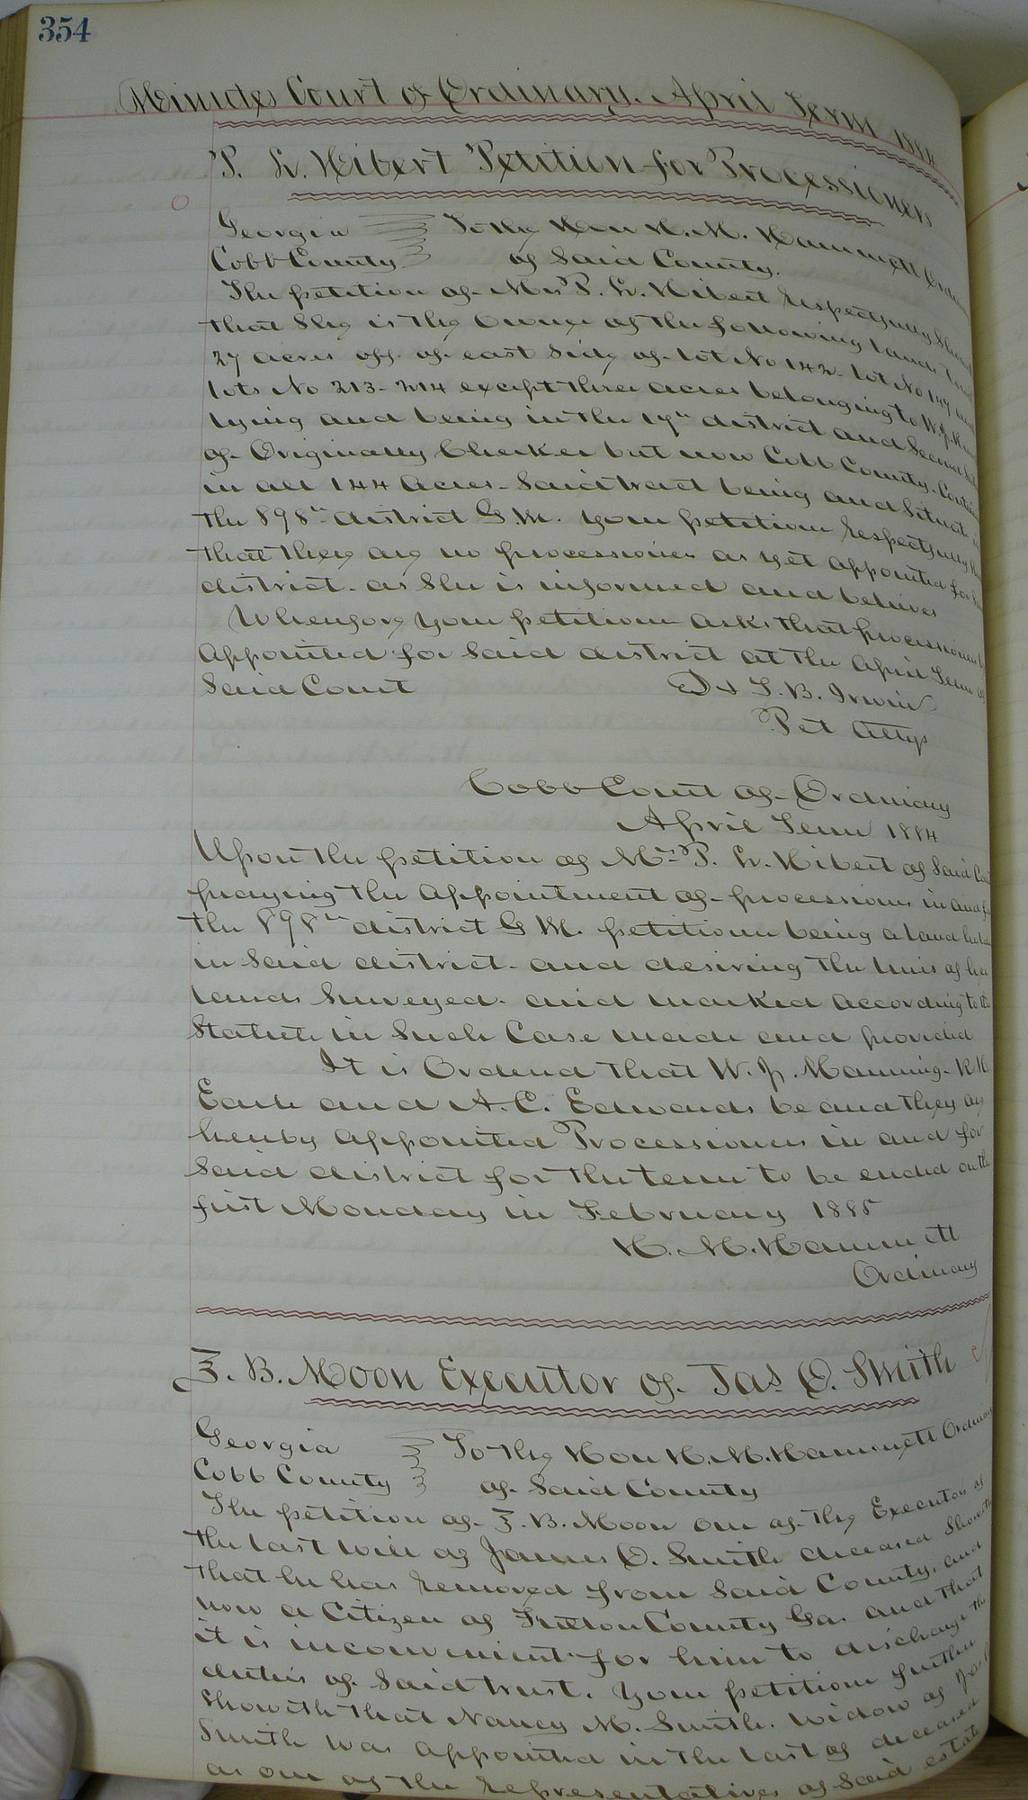 354
Minutes Court of Ordinary. April Term 1884
P. L. Hibert Petition for Processioners
Georgia To the Hon H. M. Hammett
Cobb County of Said County.
The petition of Mrs P. L. Hibert Respectfully
that She is the Owner of the following lands
27 acres off of east Side of lot No 142- lot No 147
lots No 213- 214 except three acres belonging to W. J.
lying and being in the 19th district and Second
of Originally Cherokee but now Cobb County.
in all 144 Acres. Said tract being and Situate
the 898th district G M. Your petitioner Respectfully
that they are no processioners as yet appointed for
district. as She is informed and believes
Wherefore your petitioner asks that processioners
Appointed for Said district at the April Term
Said Court D & T. B. Irwin
Pet Attys
Cobb Court of Ordinary
April Term 1884
Upon the petition of Mrs P. L. Hibert of Said
praying the appointment of processioners in and
the 898th district G M. petitioner being a land
in Said district. and desiring the lines of her
lands Surveyed. and marked according to the
Statute in Such Case made and provided
It is Ordered that W. J. Manning. R H
Earle and A. C. Edwards be and they are
hereby appointed Processioners in and for
Said district for the term to be ended on the
first Monday in February 1885
H. M. Hammett
Ordinary
F. B. Moon Executor of Jas. D. Smith
Georgia To the Hon H. M. Hammett Ordinary
Cobb County of Said County
The petition of F. B. Moon One of the Executors of
the last will of James D. Smith deceased Showeth
that he has removed from Said County, and
now a Citizen of Fulton County Ga. and that
it is inconvenient for him to discharge the
duties of Said trust. Your petitioner further
Showeth that Nancy M. Smith. widow of
Smith was appointed in the last of deceased
as one of the representatives of Said estate